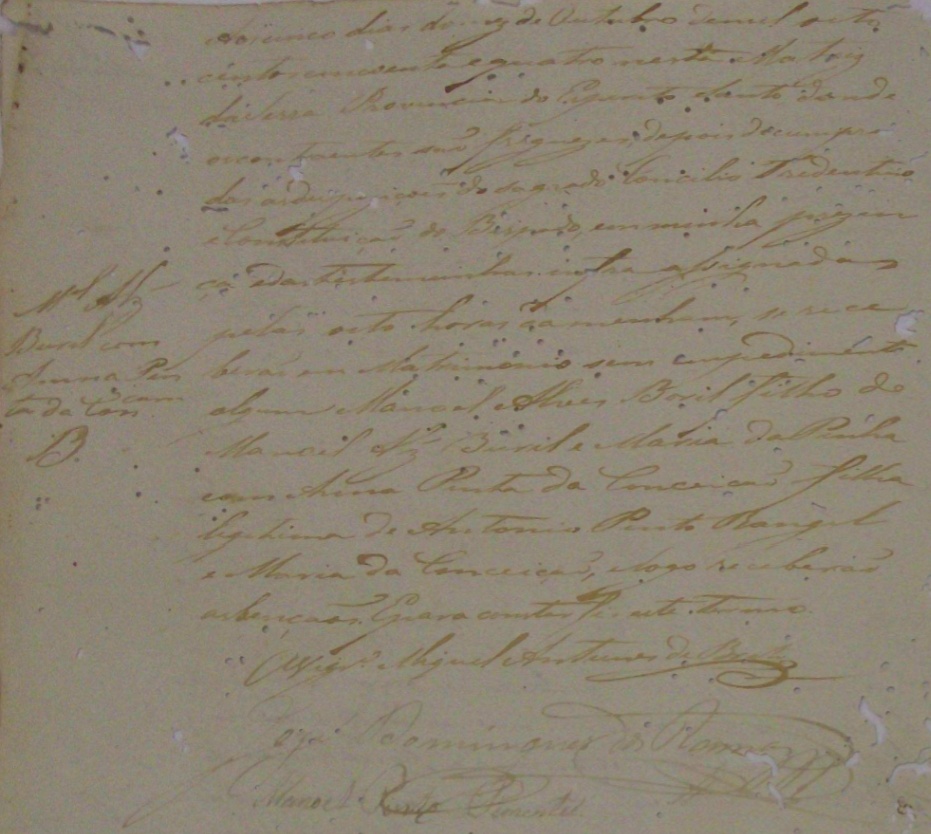 Aos cinco dias do mez de Outubro de mil oito
centos cincoenta e quatro nesta Matriz
da Serra Provincia do Espirito Santo donde
os contraentes são freguezes, depois de cumpri
das as desposições do sagrado Concilio Tridentino
e Constituição do Bispado, em minha prezen
ça e das testemunhas infra assignadas
pelas oito horas da menham, se rece
berão em Matrimonio sem empedimento
algum Manoel Alves Boril filho de
Manoel Alz Buril e Maria da Penha
com Anna Pinta da Conceição filha
legitima de Antonio Pinto Rangel
e Maria da Conceição, e logo receberão
as benções. E para constar fiz este termo.
O Vigrº Miguel Antunes de Brito
Mel Alz
Buril com
Anna Pin
ta da Con
ceicam
B.
José Domingues
Manoel Pinto Pimentel